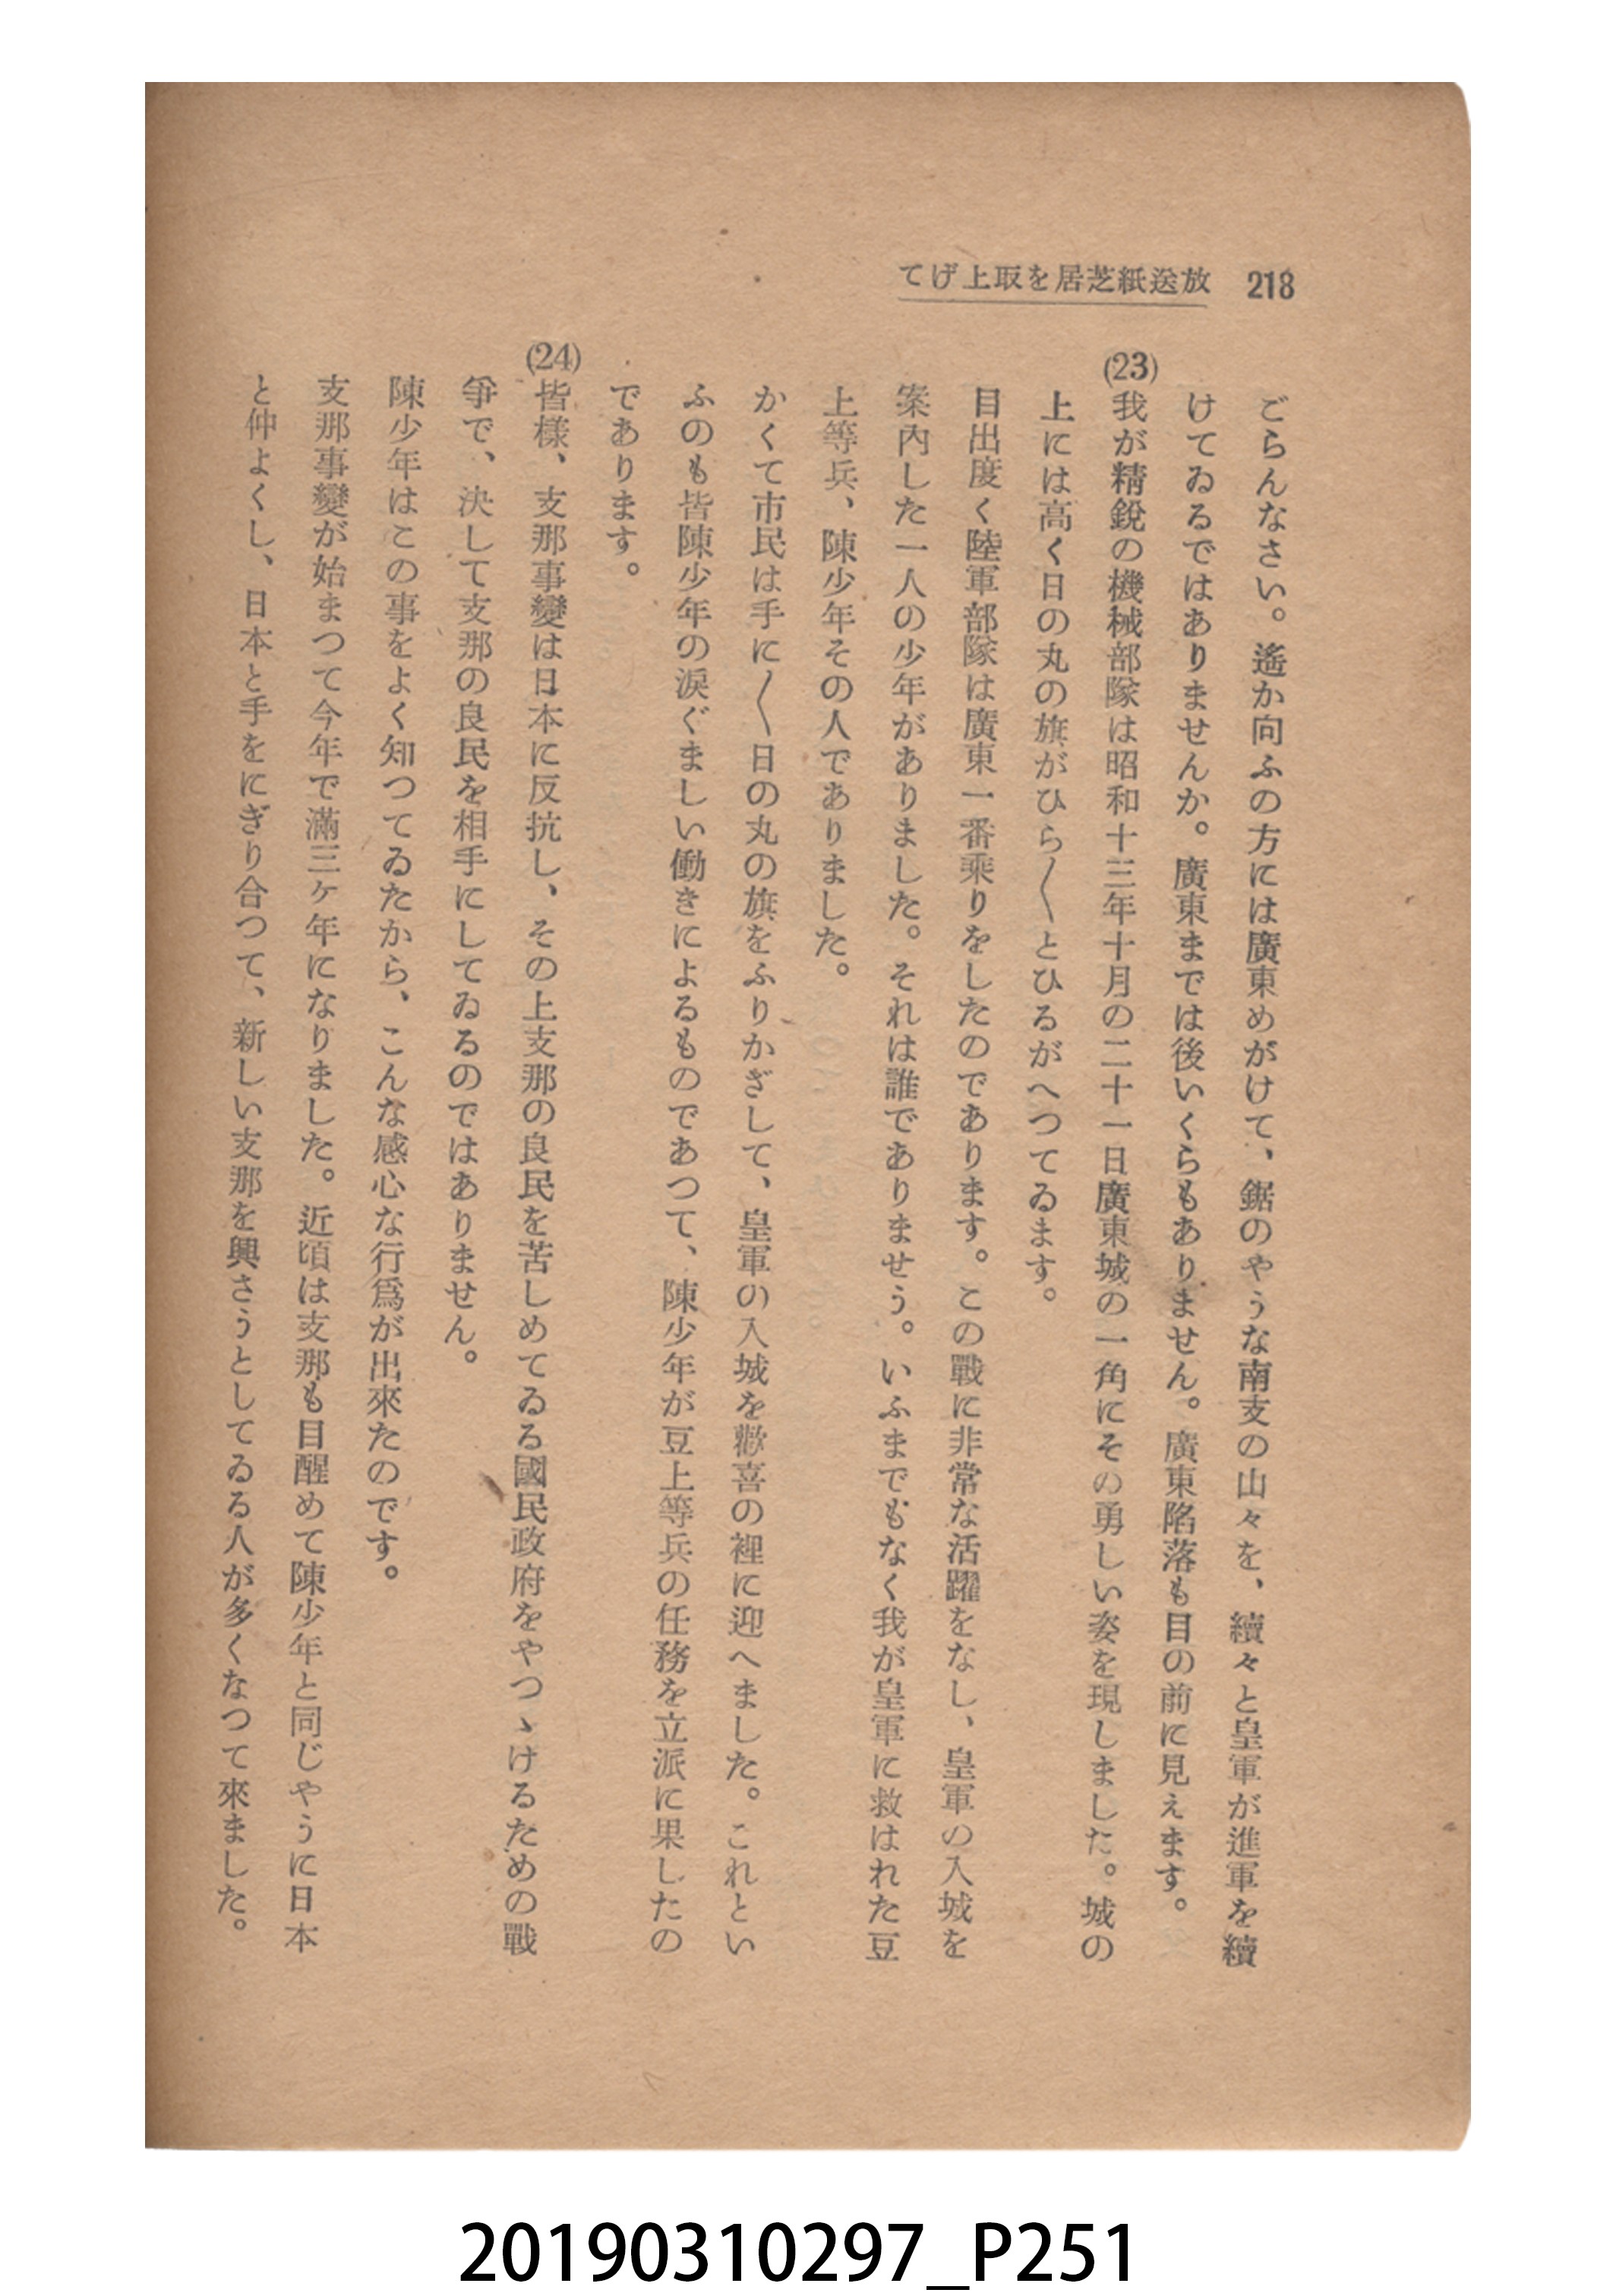 218
放送紙芝居を取上げて
ごらんなさい。遙か向ふの方には廣東めがけて、鋸のやうな南支の山々を、續々と皇軍が進軍を續
けてゐるではありませんか。廣東までは後いくらもありません。廣東陷落も目の前に見えます。
(23)我が精銳の機械部隊は昭和十三年十月の二十一日廣東城の一角にその勇しい姿を現しました。城の
上には高く日の丸の旗がひら〳〵とひるがへつてゐます。
目出度く陸軍部隊は廣東一番乘りをしたのであります。この戰に非常な活躍をなし、皇軍の入城を
案內した一人の少年がありました。それは誰でありませう。いふまでもなく我が皇軍に救はれた豆
上等兵、陳少年その人でありました。
かくて市民は手に〳〵日の丸の旗をふりかざして、皇軍の入城を歡喜の裡に迎へました。これとい
ふのも皆陳少年の淚ぐましい働きによるものであつて、陳少年が豆上等兵の任務を立派に果したの
であります。
(24)皆樣、支那事變は日本に反抗し、その上支那の良民を苦しめてゐる國民政府をやつゝけるための戰
爭で、決して支那の良民を相手にしてゐるのではありません。
陳少年はこの事をよく知つてゐたから、こんな感心な行爲が出來たのです。
支那事變が始まつて今年で滿三ケ年になりました。近頃は支那も目醒めて陳少年と同じやうに日本
と仲よくし、日本と手をにぎり合つて、新しい支那を興さうとしてゐる人が多くなつて來ました。
20190310297_P251